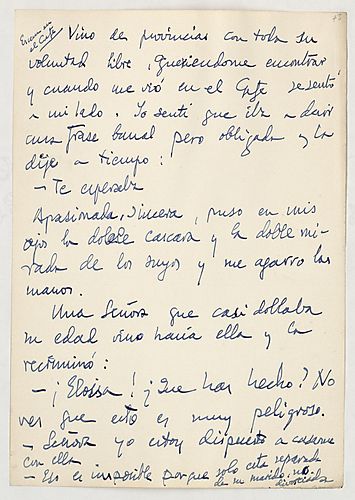 Escena en
el Café
Vino de provincias con toda su
voluntad libre, Queriendome encontrar
y cuando me vió en el Café se sentó
a mi lado. Yo sentí que iba a decir
una frase banal pero obligada y la
dije a tiempo:
— Te esperaba
Apasionada, sincera, puso en mis
ojos la doble cascara y la doble mi-
rada de los suyos y me agarro las
manos.
Una Señora que casi doblaba
su edad vino hacia ella y la
recriminó:
— ¡Eloisa! ¿Que has hecho? No
ves que esto es muy peligroso.
— Señora yo estoy dispuesto a casarme
con ella
— Eso es imposible porque solo está separada
de su marido, no
divorciada